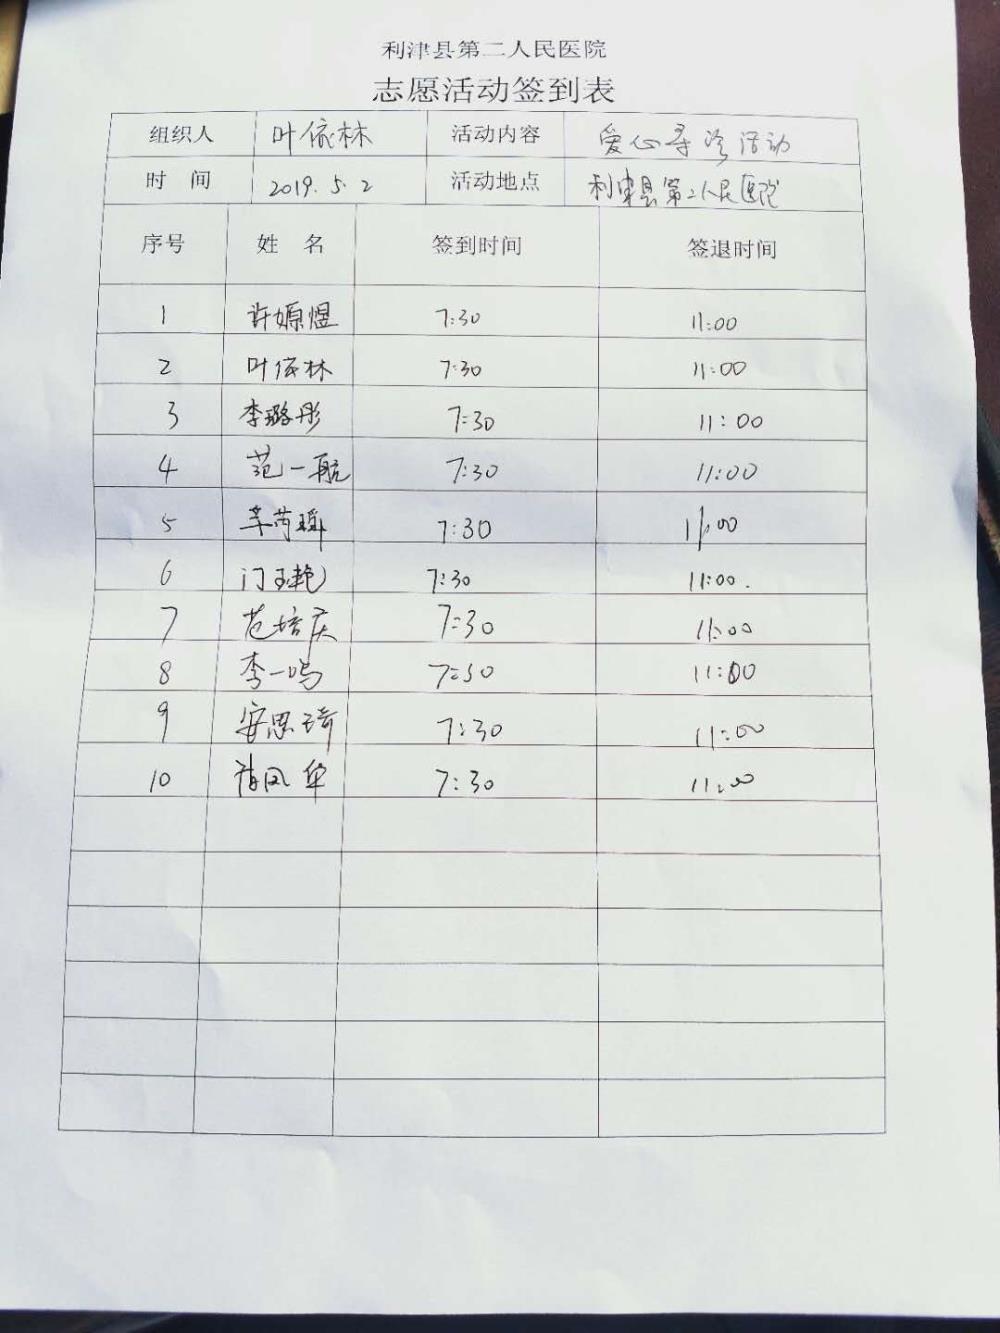 利津县第二人民医院
志愿活动签到表
组织人 叶依林 活动内容 爱心导诊活动
时 间 2019.5.2 活动地点 利津县第二人民医院
序号 姓 名 签到时间 签退时间
1 许嫄煜 7:30 11:00
2 叶依林 7:30 11:00
3 李璐彤 7:30 11:00
4 范一航 7:30 11:00
5 7:30 11:00
6 门玉艳 7:30 11:00.
7 范培庆 7:30 11:00
8 李一鸣 7:30 11:00
9 安思琦 7:30 11:00
10 7:30 11:00